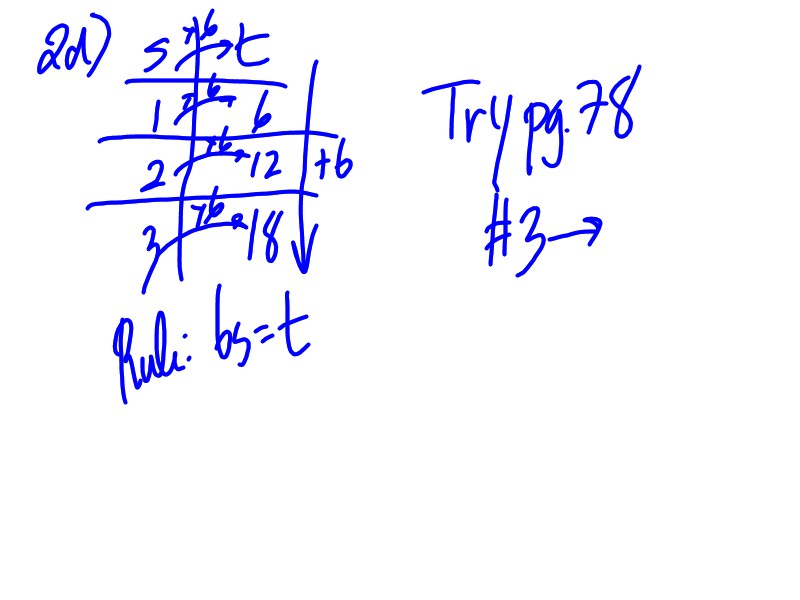 2d) s ×6 → t
1 ×6 → 6
2 ×6 → 12
3 ×6 → 18
+6
Rule: 6s = t
Try pg. 78
#3 →